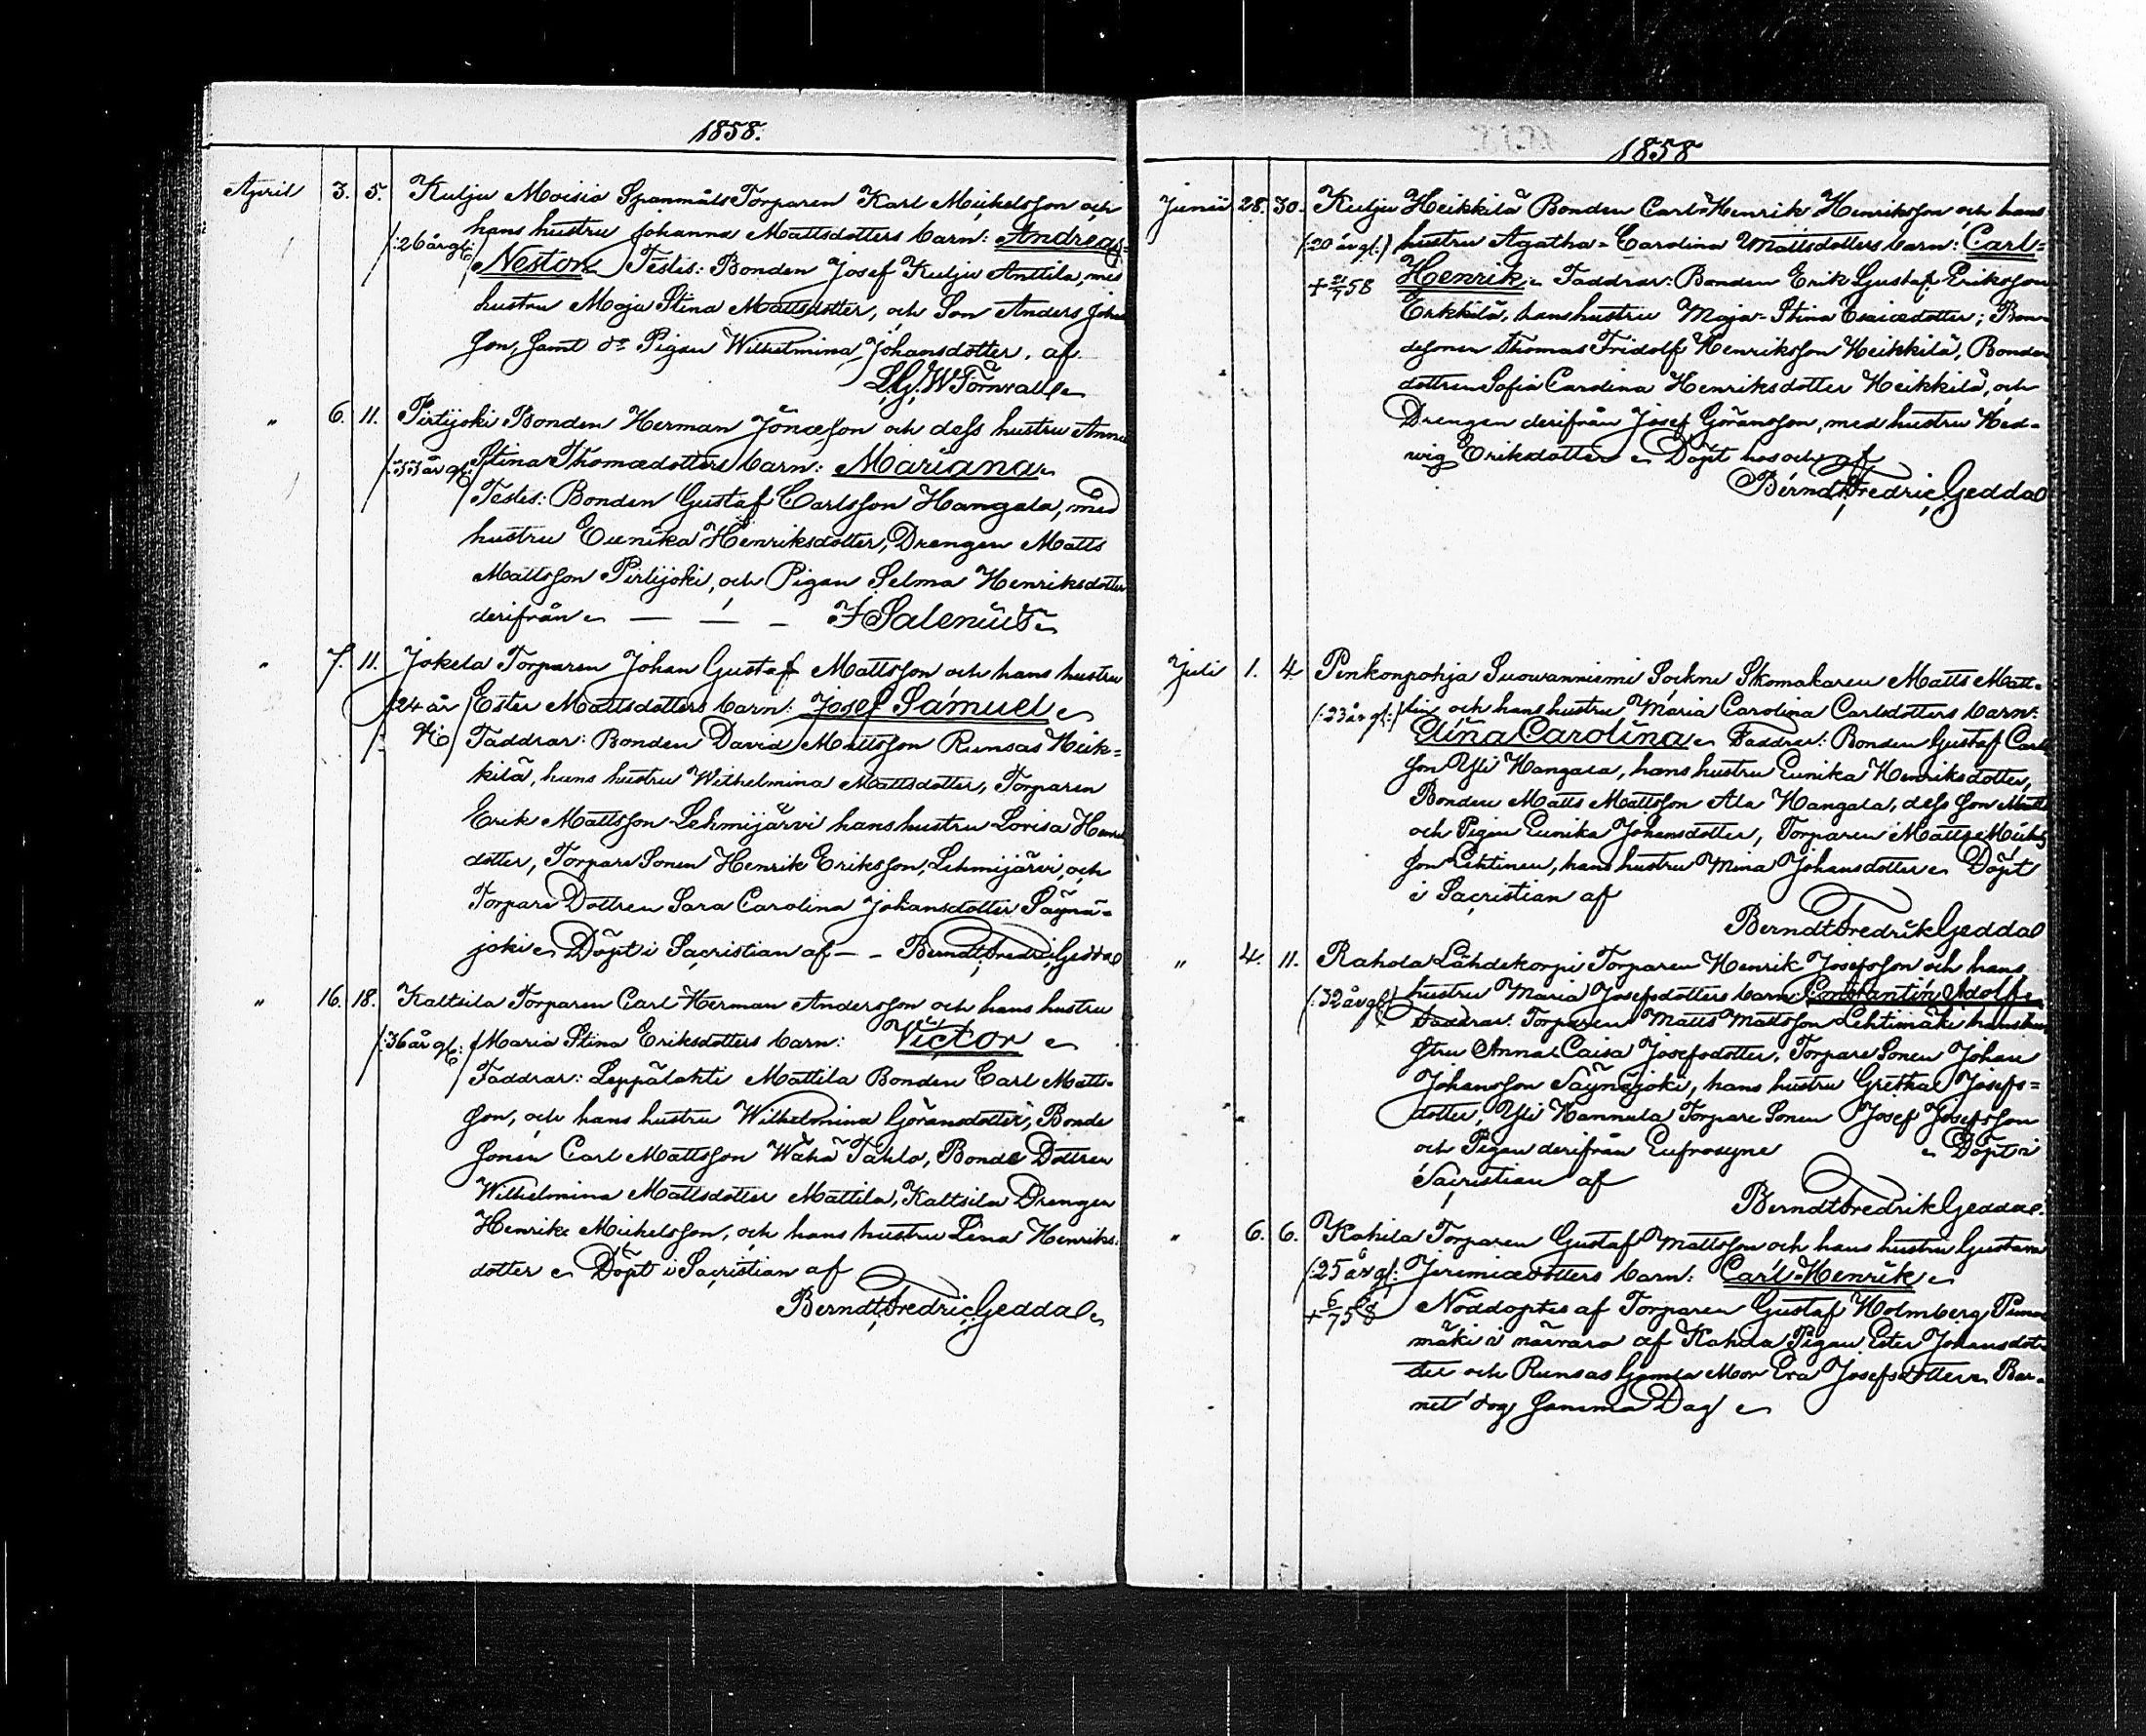 1858.
April 3. 5. Kulju Moisio Spanmåls Torparen Karl Michelsson och
hans hustru Johanna Mattsdotters barn: Andreas=
/:26 år gl:/ Nestor Testis: Bonden Josef Kulju Anttila, med
hustru Maja Stina Mattsdotter, och Son Anders Johan
son, samt dº Pigan Wilhelmina Johansdotter. af
L.G.W Törnvall
" 6. 11. Pirtijoki Bonden Herman Jönæson och dess hustru Anna
/:33 år gl:/ Stina Thomædotters barn: Mariana
Testis: Bonden Gustaf Carlsson Hangala, med
hustru Eunika Henriksdotter, Drengen Matts
Mattsson Pirtijoki, och Pigan Selma Henriksdotter
derifrån — — — F Salenius
" 7. 11. Jokela Torparen Johan Gustaf Mattsson och hans hustru
/:24 år Ester Mattsdotters barn: Josef Samuel
gl:/ Faddrar: Bonden David Mattsson Runsas Heik=
kilä, hans hustru Wilhelmina Mattsdotter, Torparen
Erik Mattsson Lehmijärvi hans hustru Lovisa Henriks
dotter, Torpare Sonen Henrik Eriksson, Lehmijärvi, och
Torpare Dottren Sara Carolina Johansdotter Säynä=
joki Döpt i Sacristian af — — Berndt Fredric Geddal
" 16. 18. Kaltsila Torparen Carl Herman Andersson och hans hustru
/:36 år gl:/ Maria Stina Eriksdotters barn: Victor
Faddrar: Leppälahti Mattila Bonden Carl Matts=
son, och hans hustru Wilhelmina Göransdotter, Bonde
Sonen Carl Mattsson Wähä Tahlo, Bonde Dottren
Wilhelmina Mattsdotter Mattila, Kaltsila Drengen
Henrik Michelsson, och hans hustru Lena Henriks=
dotter Döpt i Sacristian af
Berndt Fredric Geddal
1858
Junii 28. 30. Kulju Heikkilä Bonden Carl Henrik Henriksson och hans
/:20 år gl:/ hustru Agatha-Carolina Mattsdotters barn: Carl=
+ 21/7 58 Henrik, Faddrar: Bonden Erik Gustaf Eriksson
Erkkilä, hans hustru Maja-Stina Esaiædotter; Bon=
desonen Thomas Fridolf Henriksson Heikkilä, Bonde
dottren Sofia Carolina Henriksdotter Heikkilä, och
Drengen derifrån Josef Göransson, med hustru Hed=
vig Eriksdotter Döpt hos och af
Berndt Fredric Geddal
Julii 1. 4 Penkonpohja Suowanniemi Sockne Skomakaren Matts Matt=
/:23 år gl:/ lin och hans hustru Maria Carolina Carlsdotters barn:
Elina Carolina Faddrar: Bonden Gustaf Carls
son Yli Hangala, hans hustru Eunika Henriksdotter,
Bonden Matts Mattsson Ala Hangala, dess son Matts
och Pigan Eunika Johansdotter, Torparen Matts Michels
son Lehtinen, hans hustru Mina Johansdotter Döpt
i Sacristian af
Berndt Fredrik Geddal
" 4. 11. Rahola Lähdekorpi Torparen Henrik Josefsson och hans
/:32 år gl:/ hustru Maria Josefsdotters barn: Constantin Adolf
Faddrar: Torparen Matts Mattsson Lehtimäki hans hu
stru Anna Caisa Josefsdotter, Torpare Sonen Johan
Johansson Säynäjoki, hans hustru Gretha Josefs=
dotter, Yli Hannula Torpare Sonen Josef Josefsson
och Pigan derifrån Eufrosyne Döpt i
Sacristian af
Berndt Fredrik Geddal.
" 6. 6. Kahila Torparen Gustaf Mattsson och hans hustru Gustava
/:25 år gl: Jeremiædotters barn: Carl-Henrik
+ 6/7 58 Nöddöptes af Torparen Gustaf Holmberg
mäki i närvaro af Kahila Pigan Ester Johansdot=
ter och Runsas Gamla Mor Eva Josefsdotter Bar=
net dog samma Dag